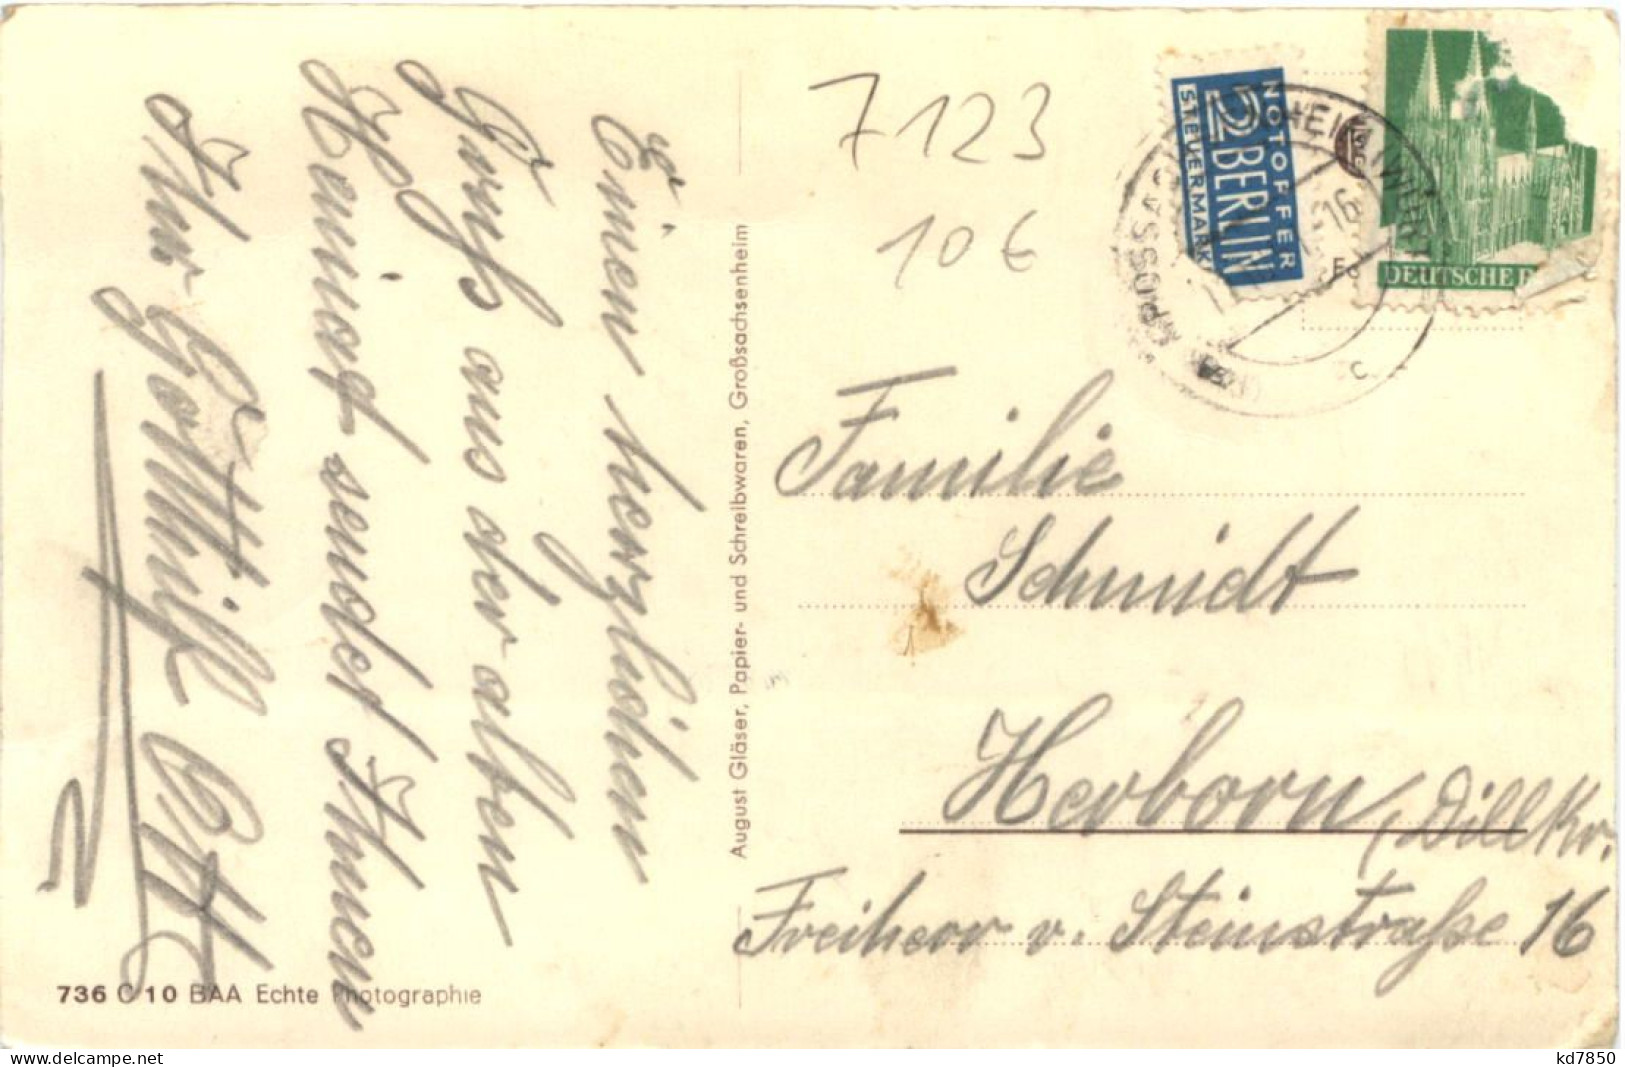 Einen herzlichen
Gruß aus der alten
Heimat sendet Ihnen
Ihr Gotthilf
736 C 10 BAA Echte Photographie
August Gläser, Papier- und Schreibwaren, Großsachsenheim
7123
10 €
NOTOFFER
2 BERLIN
STEUERMARKE
16
c
DEUTSCHE
Familie
Schmidt
Herborn, Dillkr.
Freiherr v. Steinstraße 16
www.delcampe.net
kd7850